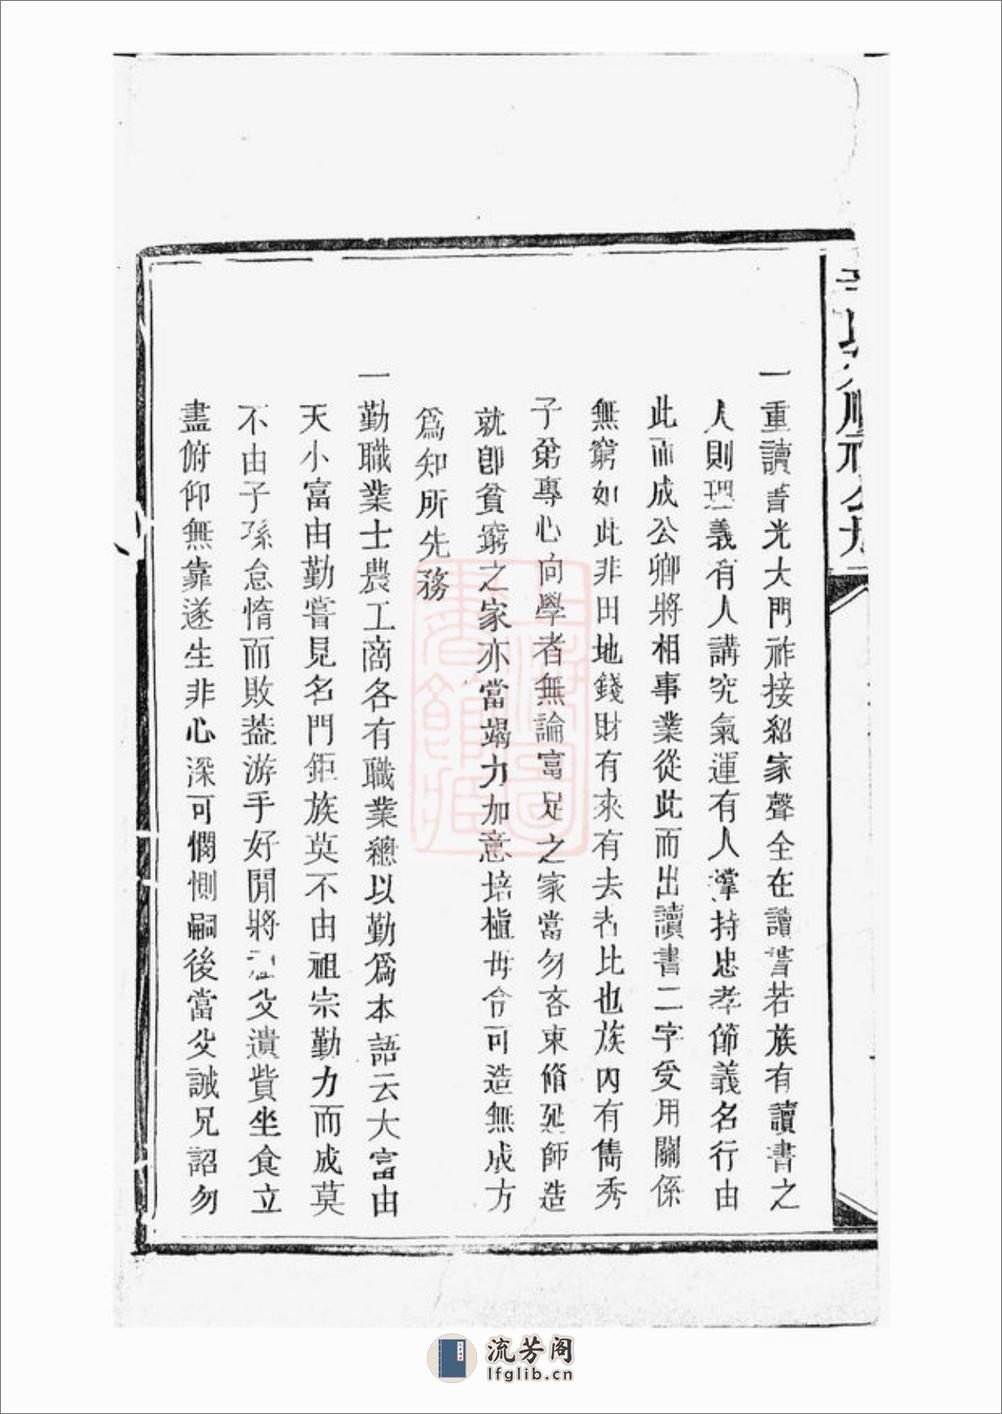 一重讀書光大門祚接紹家聲全在讀書若族有讀書之
人則理義有人講究氣運有人撐持忠孝節義名行由
此而成公卿將相事業從此而出讀書二字受用關係
無窮如此非田地錢財有來有去者比也族內有雋秀
子弟專心向學者無論富足之家當勿吝束脩延師造
就卽貧窮之家亦當竭力加意培植毋令可造無成方
爲知所先務
一勤職業士農工商各有職業總以勤爲本語云大富由
天小富由勤嘗見名門鉅族莫不由祖宗勤力而成莫
不由子孫怠惰而敗蓋游手好閒將祖父遺貲坐食立
盡俯仰無靠遂生非心深可憫惻嗣後當父誡兄詔勿
流芳阁
lfglib.cn